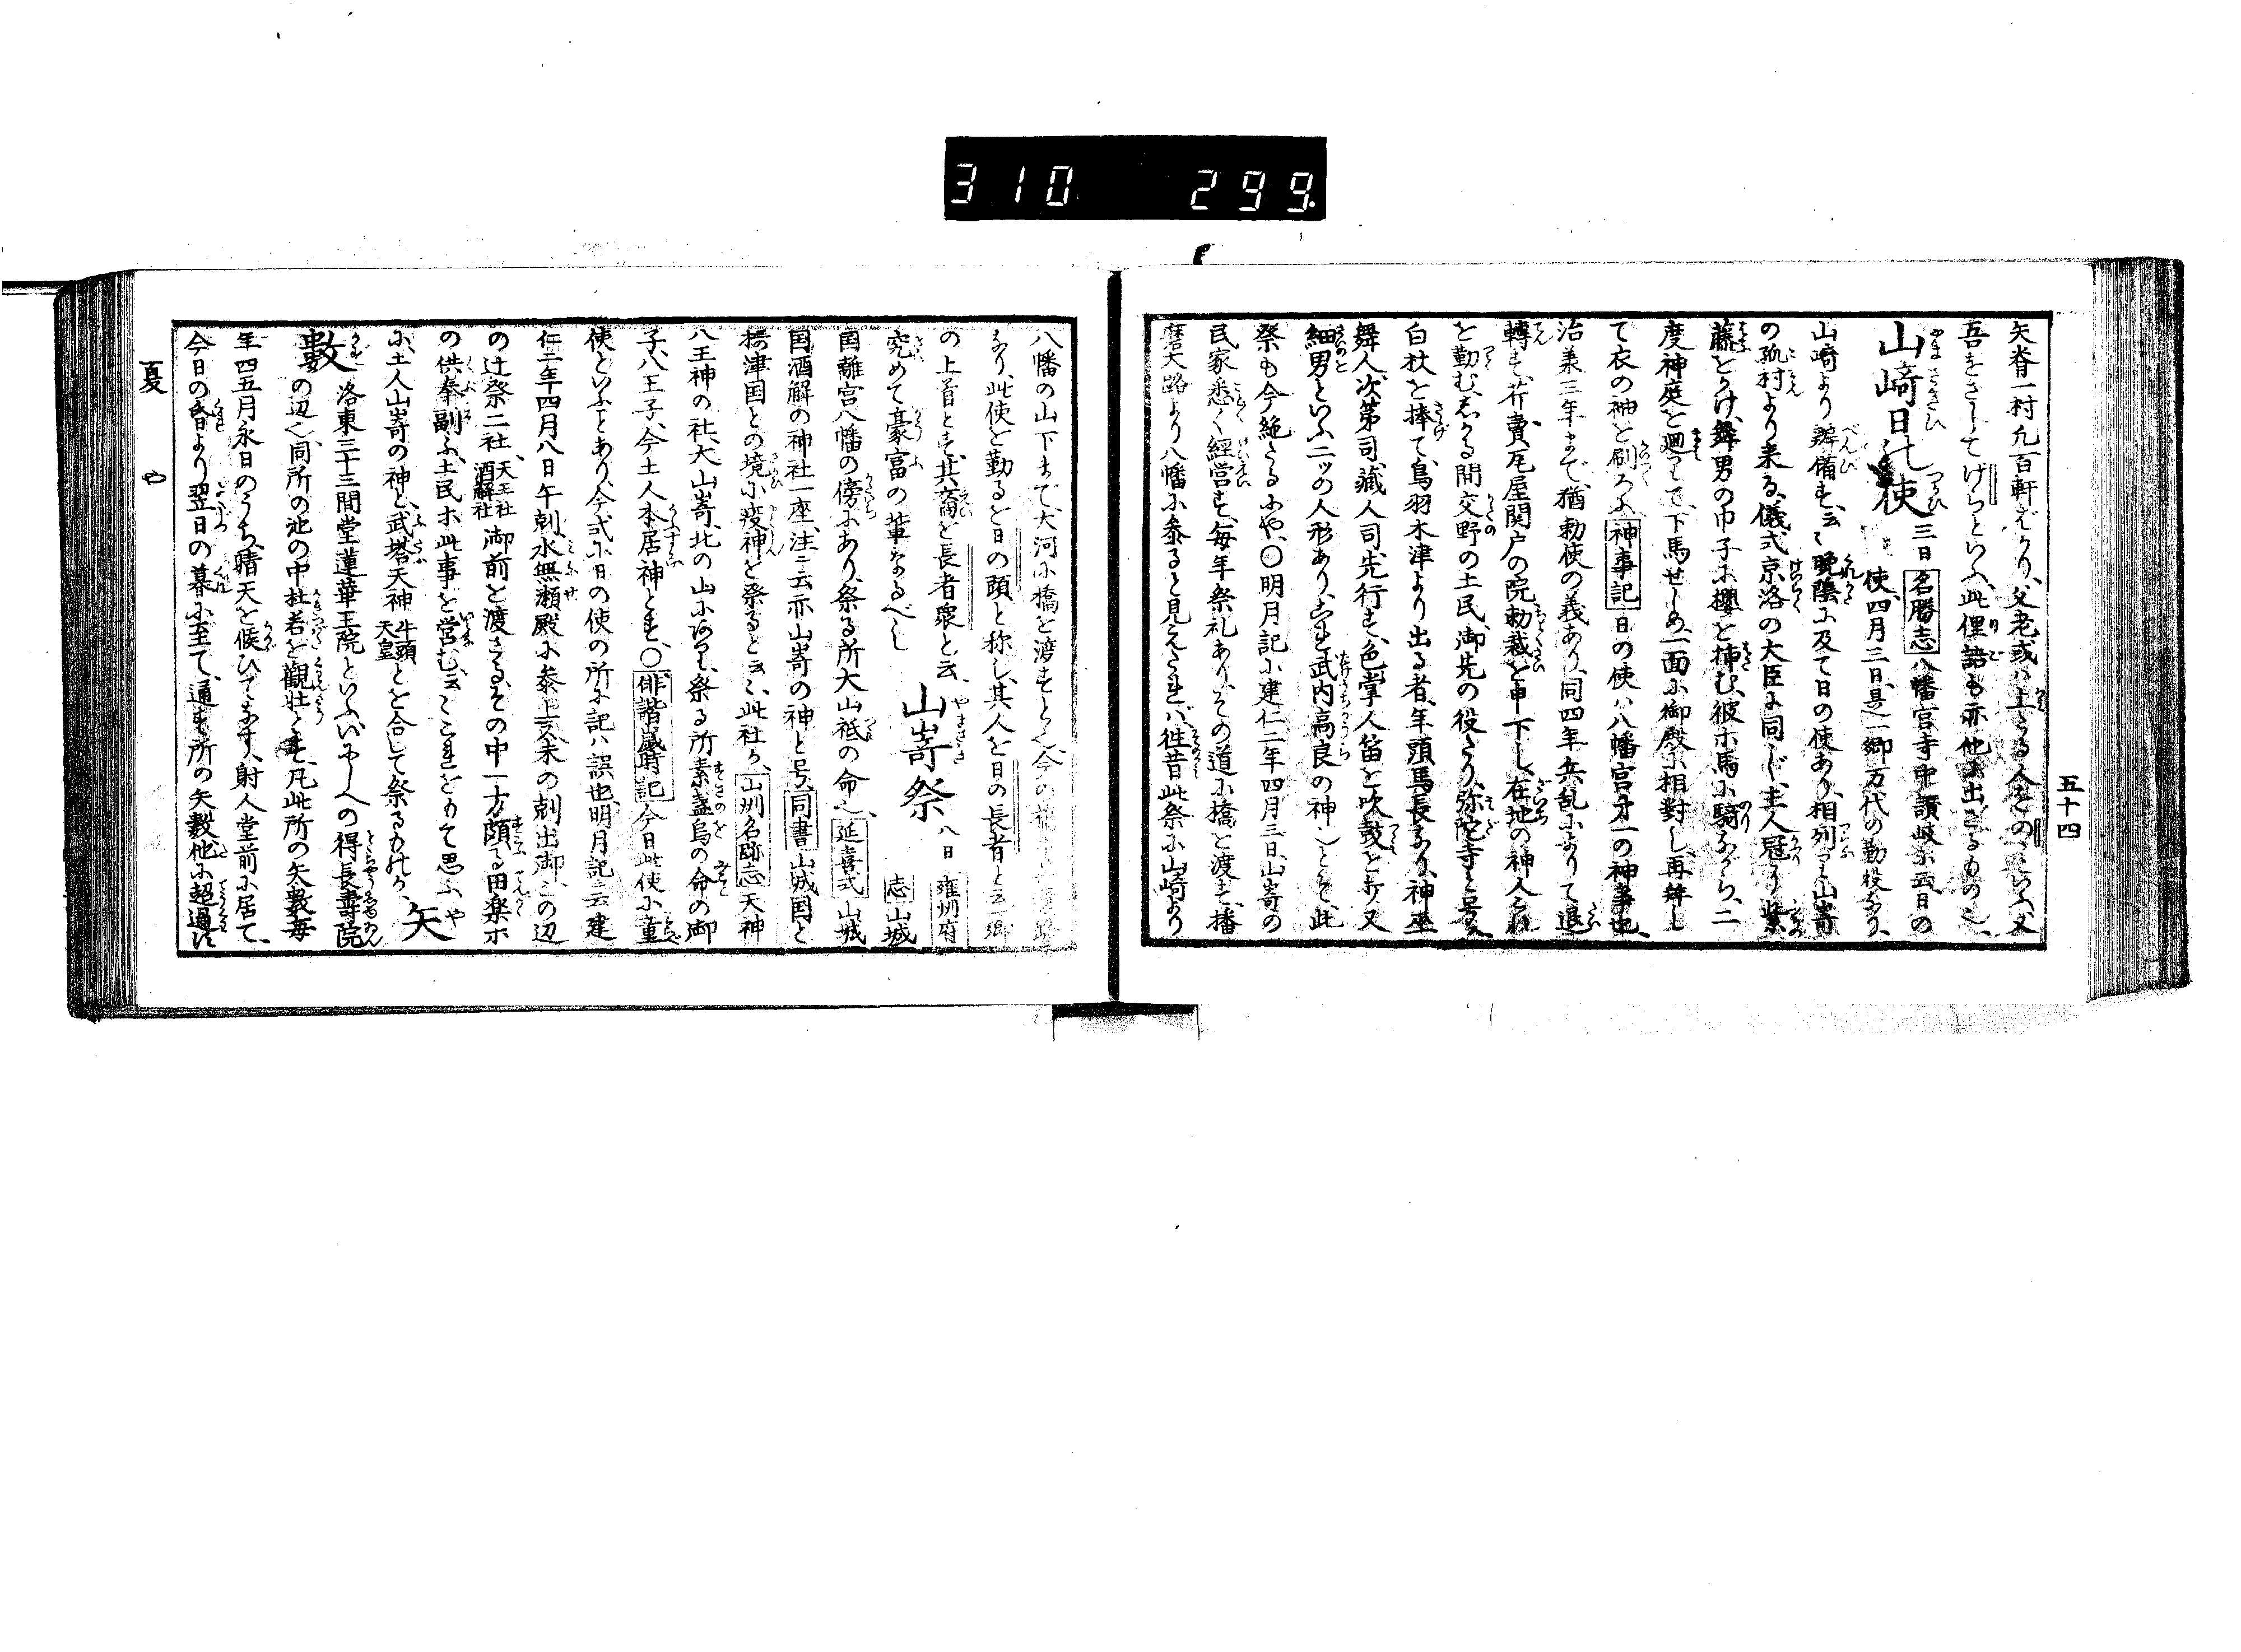 310 299
五十四
矢脊一村凡百軒ばかり、父老或ハ主たる人をのゝといふ、又
吾をさしてげらといふ、此俚語も亦他に出ざるもの也、
山﨑日の使 三日 名勝志 八幡宮寺申讃岐ニ云、日の
使、四月三日、是一郷万代の勤役なり、
山崎より辨備す、云々、晩陰に及て日の使あり、相列りて山嵜
の孤村より来る、儀式京洛の大臣に同じ、主人冠り紫
藤をかけ、舞男の巾子に櫻を挿む、彼ホ馬に騎ながら、二
度神庭を廻りて下馬せしめ、一面に御殿に相對し、再拜し
て衣の神を刷ふ、神事記 日の使ハ八幡宮才一の神事也、
治兼三年まで、猶勅使の義あり、同四年兵乱によりて退
轉す、芥費、瓦屋関戸の院勅裁を申下し、在地の神人これ
を勤む、しかる間交野の土民、御先の役たり、弥陀寺と号、
白杖を捧て、鳥羽木津より出る者、年頭馬長なり、神巫
舞人、次第司、蔵人司、先行す、色掌人笛を吹、鼓を打、又
細男といふ二ツの人形あり、これ武内高良の神也とぞ、此
祭も今絶たるにや、○明月記に建仁二年四月三日、山嵜の
民家悉く經営す、毎年祭礼あり、その道に橋を渡す、播
磨大路より八幡に参ると見えたれバ、往昔此祭に山崎より
八幡の山下まで、大河に橋を渡すと也、今の
なり、此使を勤るを日の頭と称し、其人を日の長者と云、一郷
の上首とす、其裔を長者衆と云、
究めて豪富の輩なるべし 山嵜祭 八日 雍州府志 山城
国離宮八幡の傍にあり、祭る所大山祇の命也、延喜式 山城
国酒解の神社一座、注ニ云、亦山嵜の神と号、同書 山城国と
摂津国との境に疫神を祭ると云々、此社か、山州名跡志 天神
八王神の社、大山嵜、北の山にあり、祭る所素盞烏の命の御
子、八王子、今土人本居神とす、○俳諧歳時記 今日此使小童
使といふとあり、今、式に日の使の所に記ハ誤也、明月記ニ云、建
仁二年四月八日午剋、水無瀬殿に参上、未の剋出御、この辺
の辻祭二社、天王社酒解社 御前を渡さる、その中一方頗る田楽ホ
の供奉副ふ、土民ホ此事を営む、云々、これをもて思ふ
に、土人山嵜の神と、武塔天神牛頭天皇とを合して祭るものか、矢
數 洛東三十三間堂蓮華王院といふ、いにしへの得長壽院
の辺也、同所の池の中杜若を觀壮とす、凡此所の矢數毎
年四五月永日のうち、晴天を候ひてなす、射人堂前に居て、
今日の昏より翌日の暮に至て、通す所の矢數、他に超過に
夏 や